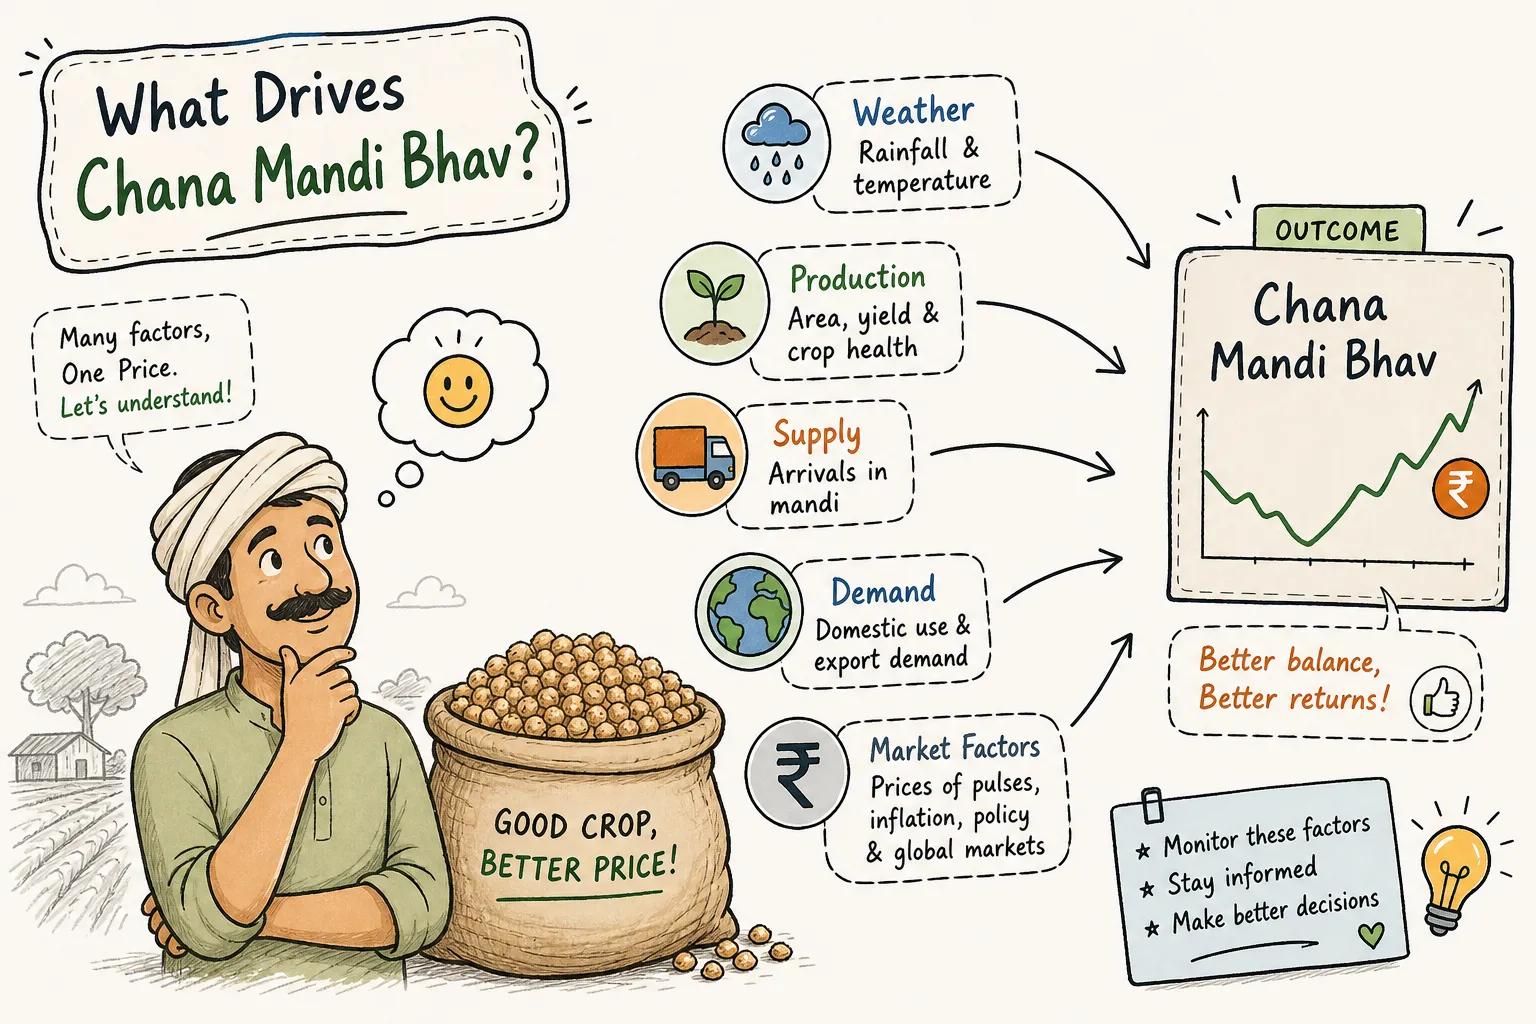 What Drives
Chana Mandi Bhav?
Many factors,
One Price.
Let's understand!
GOOD CROP,
BETTER PRICE!
Weather
Rainfall &
temperature
Production
Area, yield &
crop health
Supply
Arrivals in
mandi
Demand
Domestic use &
export demand
₹
Market Factors
Prices of pulses,
inflation, policy
& global markets
OUTCOME
Chana
Mandi Bhav
₹
Better balance,
Better returns!
★ Monitor these factors
★ Stay informed
★ Make better decisions